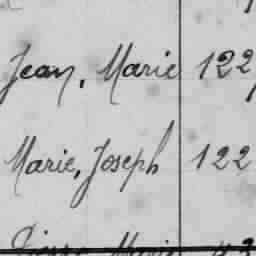 Jean, Marie 122
Marie, Joseph 122